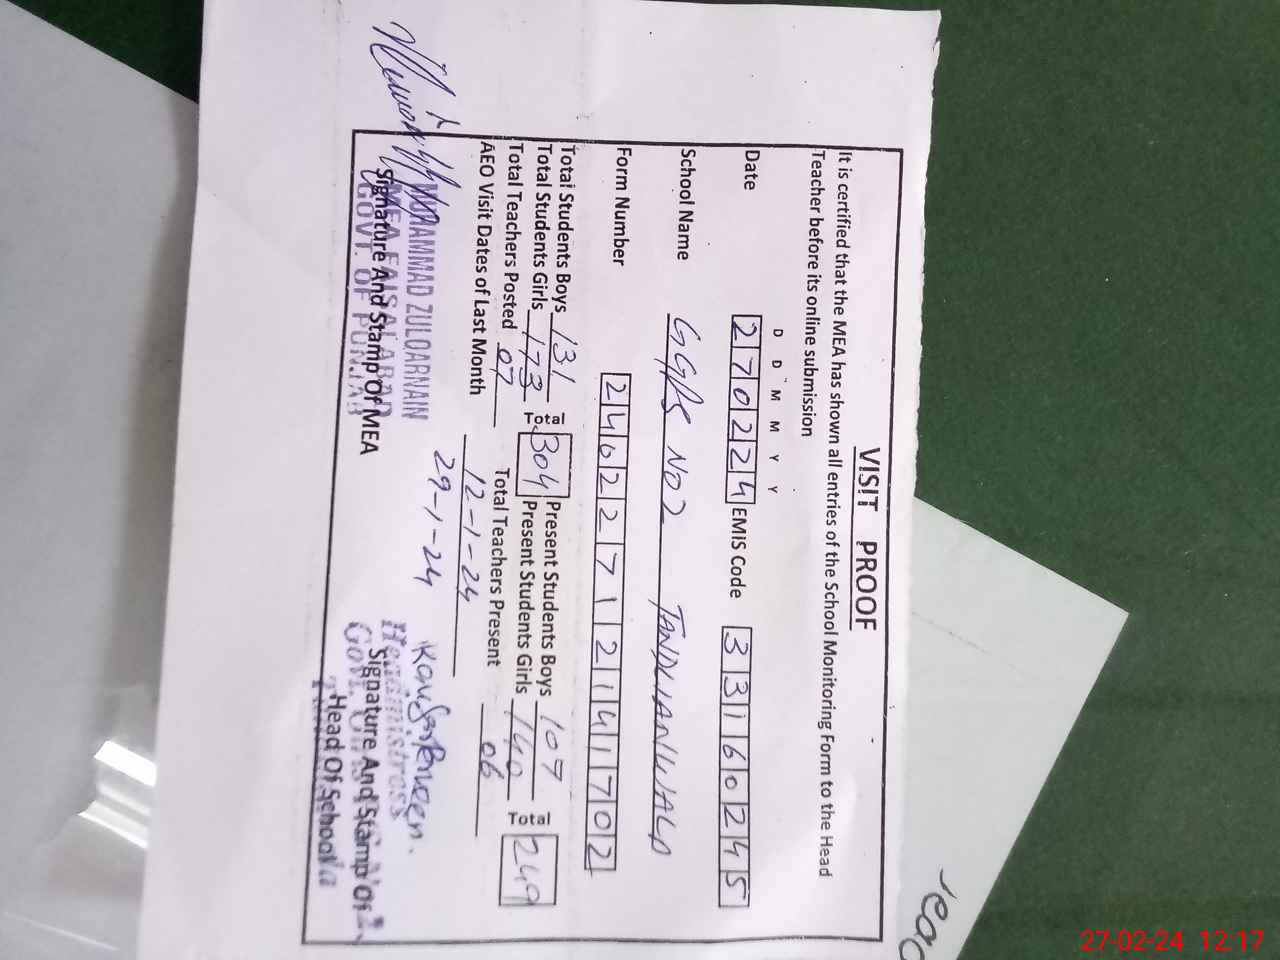 VISIT PROOF
It is certified that the MEA has shown all entries of the School Monitoring Form to the Head
Teacher before its online submission
D D M M Y Y
Date 270224 EMIS Code 33160245
School Name GGPS NO2 TANDLIANWALA
Form Number 24022712141702
Total Students Boys 131 Total 304 Present Students Boys 107 Total 249
Total Students Girls 173 Present Students Girls 140
Total Teachers Posted 07 Total Teachers Present 06
AEO Visit Dates of Last Month 12-1-24
29-1-24
MUHAMMAD ZULQARNAIN
MEA FAISALABAD
GOVT. OF PUNJAB
Signature And Stamp Of MEA
Kausar Parveen.
Headmistress
Govt.
Signature And Stamp Of
Head Of School
reac
27-02-24 12:17